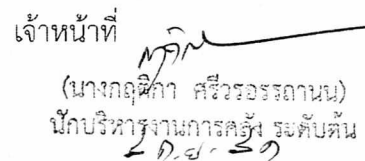 เจ้าหน้าที่
(นางกฤติกา ศรีวรอรรถานน)
นักบริหารงานการคลัง ระดับต้น